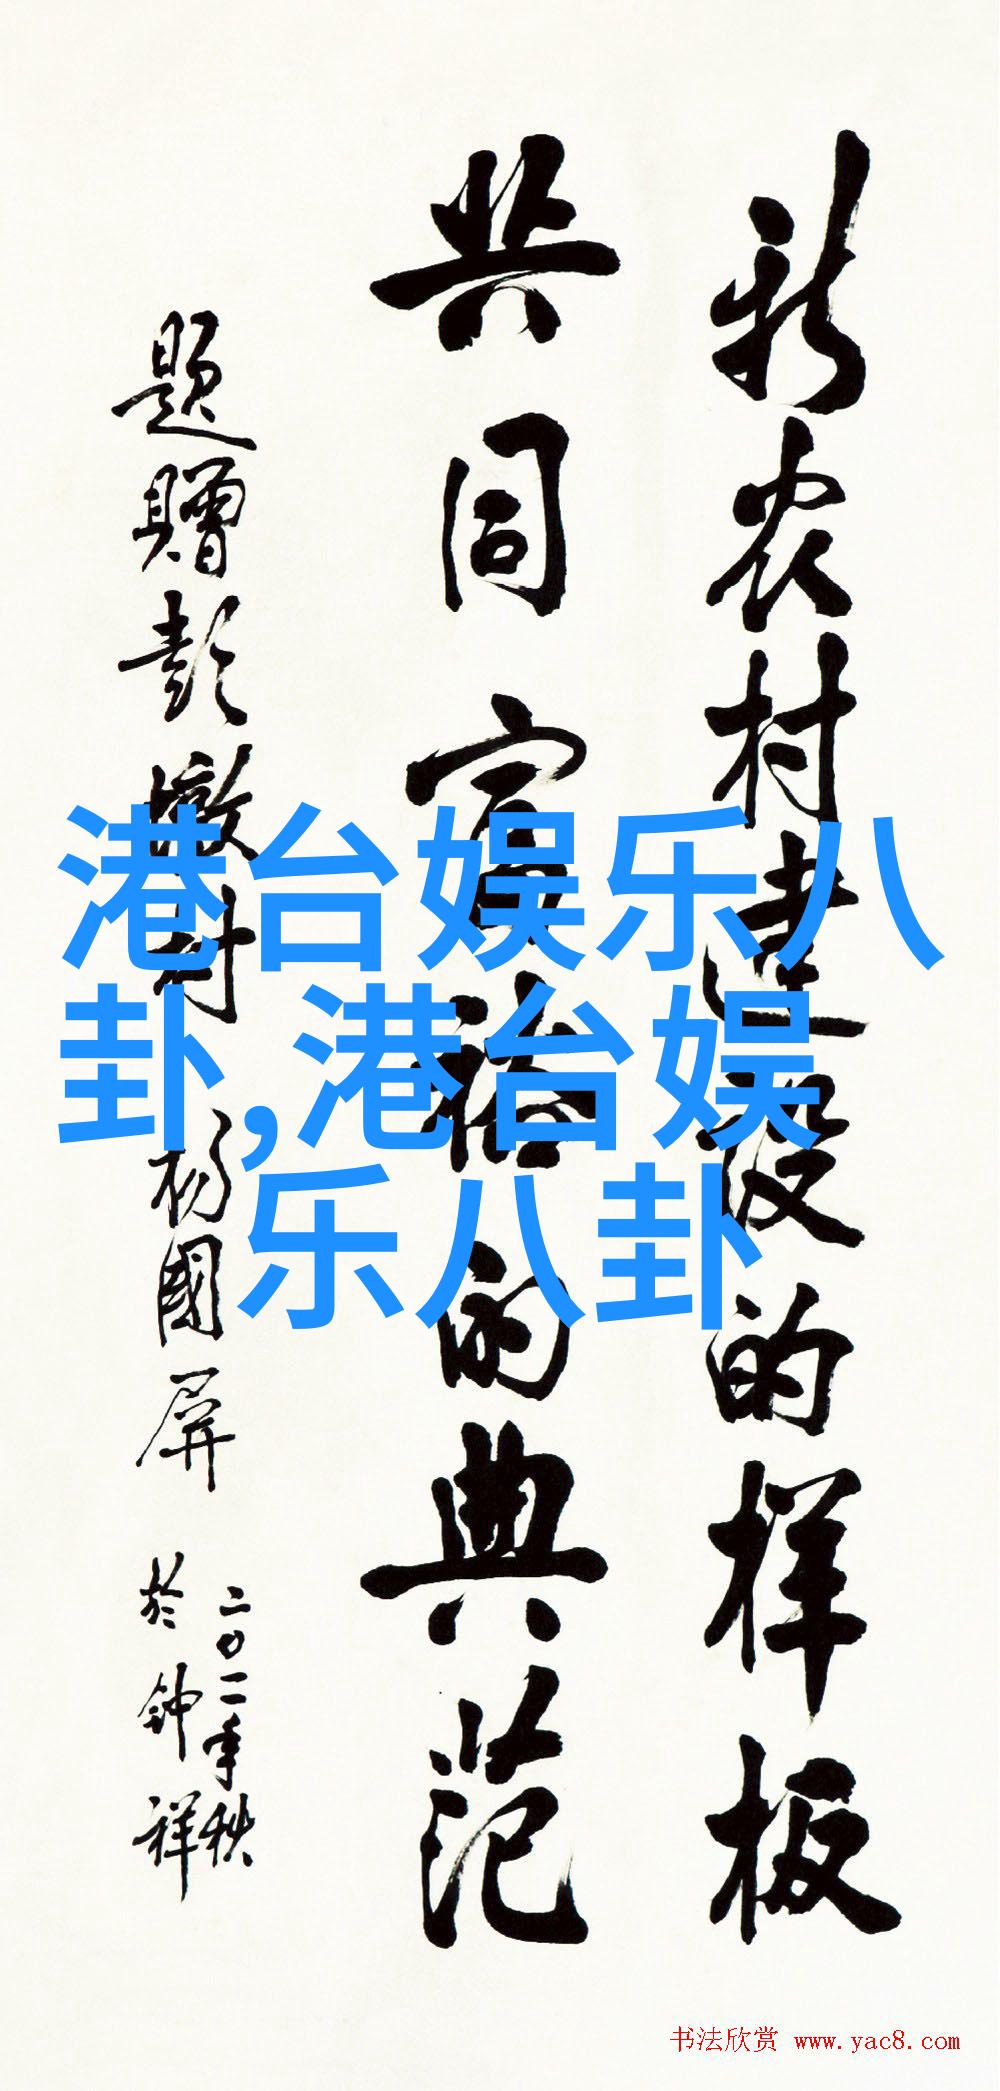 新农村建设的样板
共同富裕的典范
题赠彭墩村 杨国屏
二〇一一年秋
於钟祥
港台娱乐八
卦,港台娱
乐八卦
书法欣赏 www.yac8.com